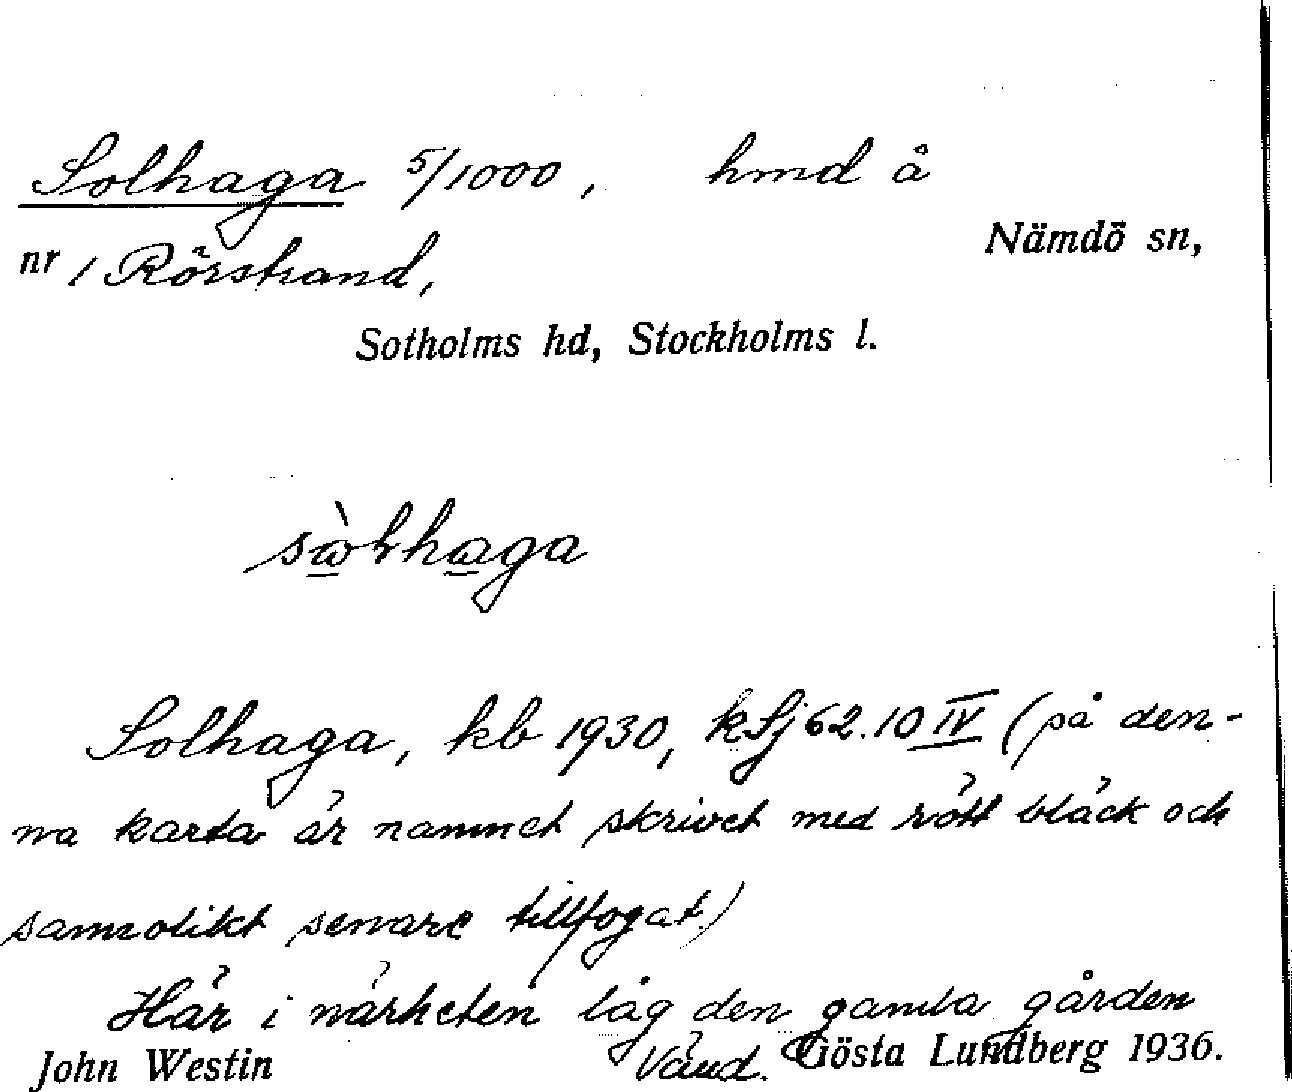 Solhaga 5/1000, hmd å
nr 1 Rörstrand, Nämdö sn,
Sotholms hd, Stockholms l.
Solhaga, kb 1930, kSj 62.10 IV (på den-
na karta är namnet skrivet med rött bläck och
sannolikt senare tillfogat.)
Här i närheten låg den gamla gården
John Westin Vänd. Gösta Lundberg 1936.